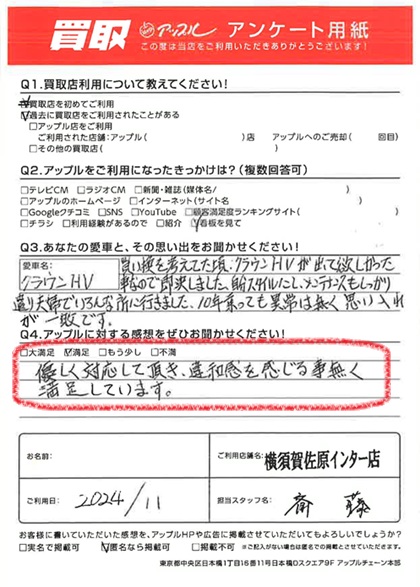 買取 アップル アンケート用紙
この度は当店をご利用いただきありがとうございます!
Q1.買取店利用について教えてください!
☑買取店を初めてご利用
☑過去に買取店をご利用されたことがある
□アップル店をご利用
ご利用された店舗:アップル( )店 アップルへのご売却( 回目)
□その他の買取店( )
Q2.アップルをご利用になったきっかけは?(複数回答可)
□テレビCM □ラジオCM □新聞・雑誌(媒体名/ )
□アップルのホームページ □インターネット(サイト名 )
□Googleクチコミ □SNS □YouTube □顧客満足度ランキングサイト( )
□チラシ □利用経験があるので □紹介 ☑看板を見て
Q3.あなたの愛車と、その思い出をお聞かせください!
愛車名: 買い換を考えてた頃、クラウンHVが出て欲しかった
クラウンHV 車なので即決しました。
通り大事でいろんな所に行きました。10年乗っても異常は無く思い入れ
が一杯です。
Q4.アップルに対する感想をぜひお聞かせください!
□大満足 ☑満足 □もう少し □不満
優しく対応して頂き、違和感を感じる事無く
満足しています。
お名前: ご利用店舗名: 横須賀佐原インター店
ご利用日: 2024/11 担当スタッフ名: 斎藤
お客様に書いていただいた感想を、アップルHPや広告に掲載させていただいてもよろしいでしょうか?
□実名で掲載可 ☑匿名なら掲載可 □掲載不可 ※ご記入がない場合は匿名での掲載とさせていただきます。
東京都中央区日本橋1丁目16番11号日本橋Dスクエア9F アップルチェーン本部